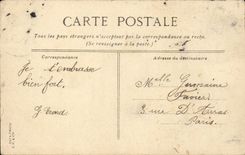 CARTE POSTALE
Tous les pays étrangers n'acceptent pas la correspondance au recto.
(Se renseigner à la poste)
Correspondance
Adresse du destinataire
Je t'embrasse
bien fort.
Melle Germaine
Favier
3 rue D'Arras
Paris.